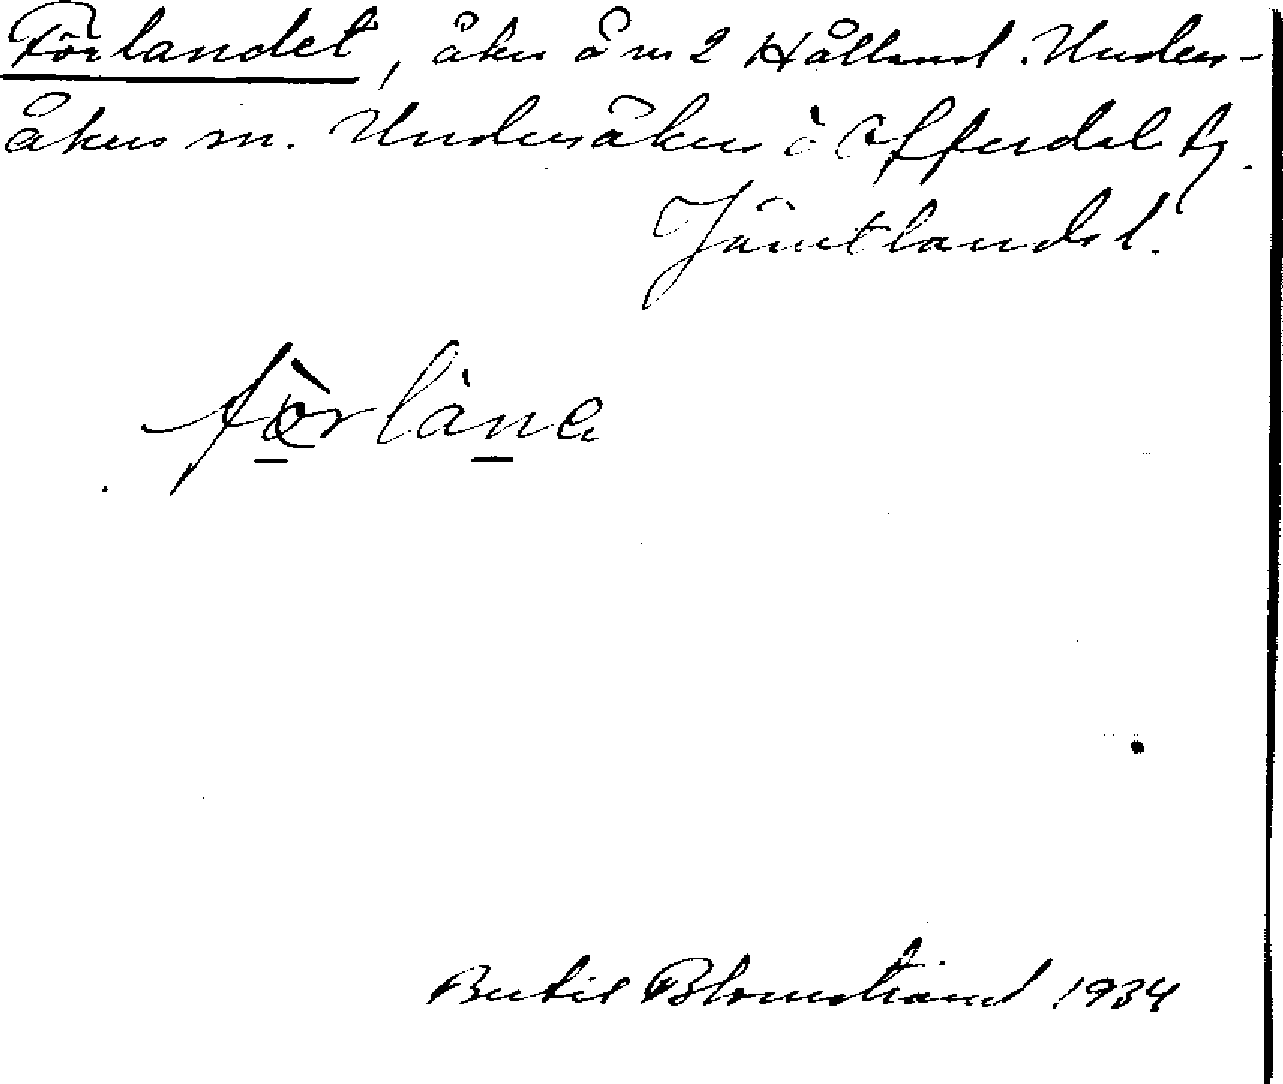 Förlandet, åker å nr 2 Hålland. Unders-
åkers sn. Undersåkers o Offerdals tg.
Jämtlands l.
fòrlàna
Bertil Blomstrand 1934